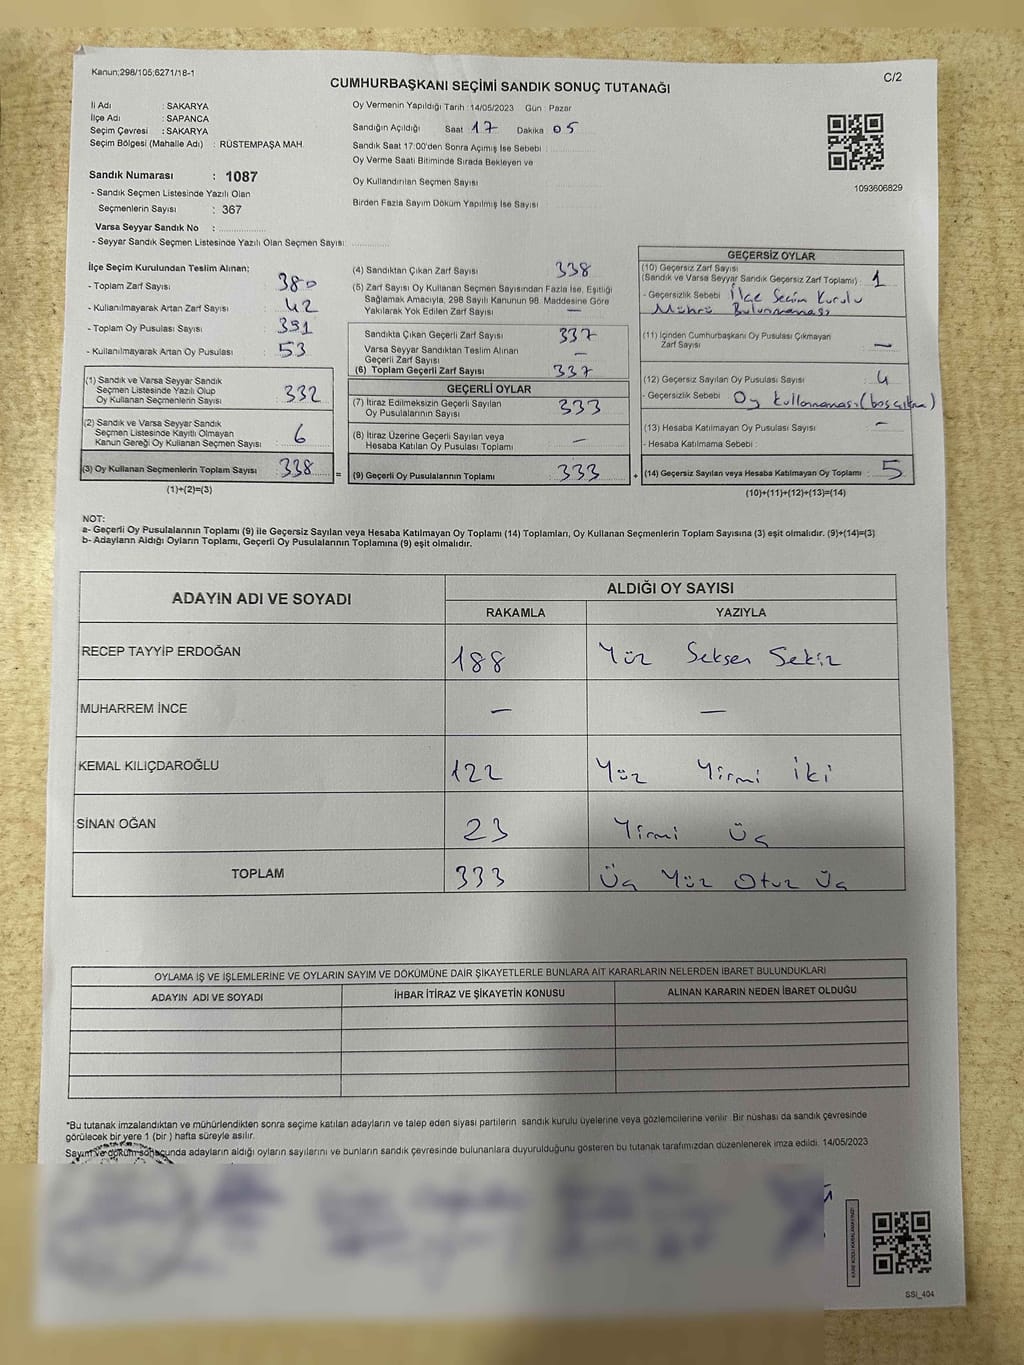 Kanun;298/105;6271/18-1
C/2
CUMHURBAŞKANI SEÇİMİ SANDIK SONUÇ TUTANAĞI
İl Adı : SAKARYA
İlçe Adı : SAPANCA
Seçim Çevresi : SAKARYA
Seçim Bölgesi (Mahalle Adı) : RÜSTEMPAŞA MAH.
Sandık Numarası : 1087
- Sandık Seçmen Listesinde Yazılı Olan
Seçmenlerin Sayısı : 367
Varsa Seyyar Sandık No :
- Seyyar Sandık Seçmen Listesinde Yazılı Olan Seçmen Sayısı:
Oy Vermenin Yapıldığı Tarih :14/05/2023 Gün : Pazar
Sandığın Açıldığı Saat 17 Dakika 05
Sandık Saat 17:00'den Sonra Açımış İse Sebebi :
Oy Verme Saati Bitiminde Sırada Bekleyen ve
Oy Kullandırılan Seçmen Sayısı
Birden Fazla Sayım Döküm Yapılmış İse Sayısı
1093606829
İlçe Seçim Kurulundan Teslim Alınan;
- Toplam Zarf Sayısı : 380
- Kullanılmayarak Artan Zarf Sayısı : 42
- Toplam Oy Pusulası Sayısı : 391
- Kullanılmayarak Artan Oy Pusulası : 53
(1) Sandık ve Varsa Seyyar Sandık
Seçmen Listesinde Yazılı Olup
Oy Kullanan Seçmenlerin Sayısı : 332
(2) Sandık ve Varsa Seyyar Sandık
Seçmen Listesinde Kayıtlı Olmayan
Kanun Gereği Oy Kullanan Seçmen Sayısı : 6
(3) Oy Kullanan Seçmenlerin Toplam Sayısı : 338 =
(1)+(2)=(3)
(4) Sandıktan Çıkan Zarf Sayısı 338
(5) Zarf Sayısı Oy Kullanan Seçmen Sayısından Fazla İse, Eşitliği
Sağlamak Amacıyla, 298 Sayılı Kanunun 98. Maddesine Göre
Yakılarak Yok Edilen Zarf Sayısı : —
Sandıkta Çıkan Geçerli Zarf Sayısı 337
Varsa Seyyar Sandıktan Teslim Alınan
Geçerli Zarf Sayısı —
(6) Toplam Geçerli Zarf Sayısı 337
GEÇERLİ OYLAR
(7) İtiraz Edilmeksizin Geçerli Sayılan
Oy Pusulalarının Sayısı : 333
(8) İtiraz Üzerine Geçerli Sayılan veya
Hesaba Katılan Oy Pusulası Toplamı : —
(9) Geçerli Oy Pusulalarının Toplamı : 333 +
GEÇERSİZ OYLAR
(10) Geçersiz Zarf Sayısı
(Sandık ve Varsa Seyyar Sandık Geçersiz Zarf Toplamı) : 1
- Geçersizlik Sebebi : İlçe Seçim Kurulu
Mührü Bulunmaması
(11) İçinden Cumhurbaşkanı Oy Pusulası Çıkmayan
Zarf Sayısı : —
(12) Geçersiz Sayılan Oy Pusulası Sayısı : 4
- Geçersizlik Sebebi : Oy kullanmaması (boş çıkma)
(13) Hesaba Katılmayan Oy Pusulası Sayısı : —
- Hesaba Katılmama Sebebi :
(14) Geçersiz Sayılan veya Hesaba Katılmayan Oy Toplamı : 5
(10)+(11)+(12)+(13)=(14)
NOT:
a- Geçerli Oy Pusulalarının Toplamı (9) ile Geçersiz Sayılan veya Hesaba Katılmayan Oy Toplamı (14) Toplamları, Oy Kullanan Seçmenlerin Toplam Sayısına (3) eşit olmalıdır. (9)+(14)=(3)
b- Adayların Aldığı Oyların Toplamı, Geçerli Oy Pusulalarının Toplamına (9) eşit olmalıdır.
ADAYIN ADI VE SOYADI
ALDIĞI OY SAYISI
RAKAMLA YAZIYLA
RECEP TAYYİP ERDOĞAN 188 Yüz Seksen Sekiz
MUHARREM İNCE — —
KEMAL KILIÇDAROĞLU 122 Yüz Yirmi İki
SİNAN OĞAN 23 Yirmi Üç
TOPLAM 333 Üç Yüz Otuz Üç
OYLAMA İŞ VE İŞLEMLERİNE VE OYLARIN SAYIM VE DÖKÜMÜNE DAİR ŞİKAYETLERLE BUNLARA AİT KARARLARIN NELERDEN İBARET BULUNDUKLARI
ADAYIN ADI VE SOYADI İHBAR İTİRAZ VE ŞİKAYETİN KONUSU ALINAN KARARIN NEDEN İBARET OLDUĞU
*Bu tutanak imzalandıktan ve mühürlendikten sonra seçime katılan adayların ve talep eden siyasi partilerin sandık kurulu üyelerine veya gözlemcilerine verilir. Bir nüshası da sandık çevresinde
görülecek bir yere 1 (bir ) hafta süreyle asılır.
Sayım ve döküm sonucunda adayların aldığı oyların sayılarını ve bunların sandık çevresinde bulunanlara duyurulduğunu gösteren bu tutanak tarafımızdan düzenlenerek imza edildi. 14/05/2023
KARE KODU KARALAMAYINIZ!
SSİ_404